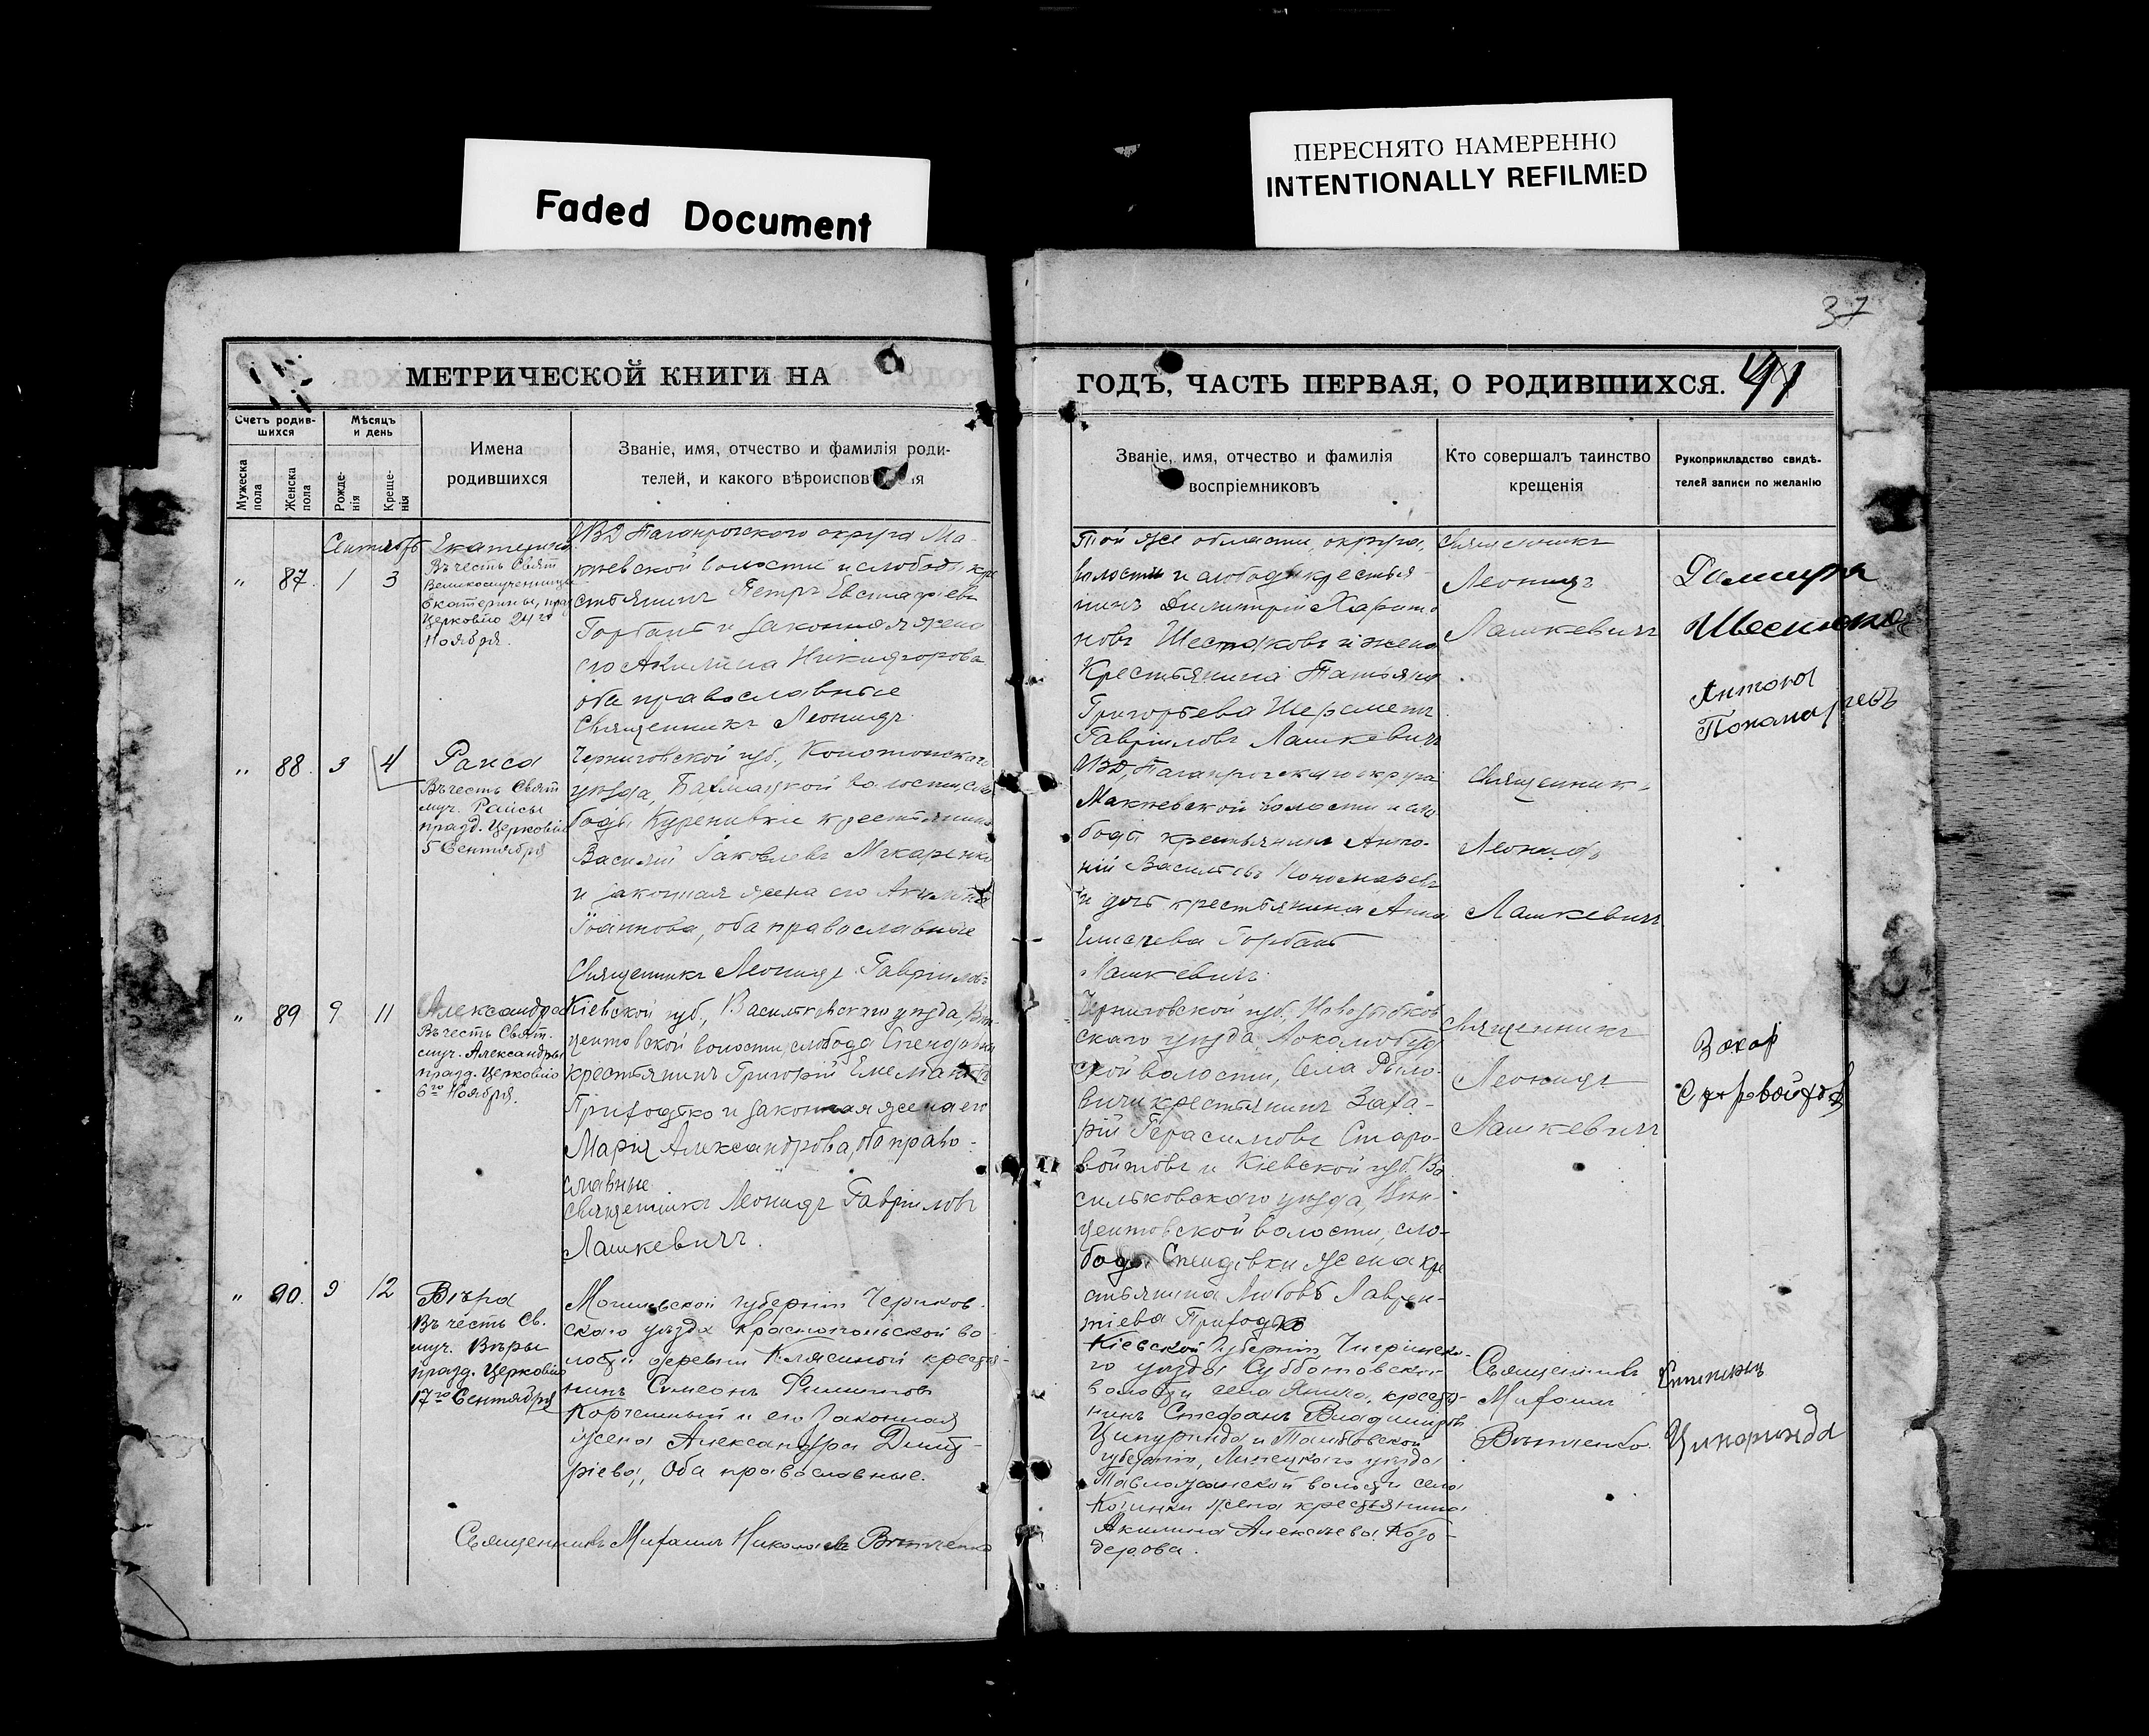 Faded Document
ПЕРЕСНЯТО НАМЕРЕННО
INTENTIONALLY REFILMED
37
МЕТРИЧЕСКОЙ КНИГИ НА
ГОДЪ, ЧАСТЬ ПЕРВАЯ, О РОДИВШИХСЯ.
41
Счетъ родив-
шихся
Мѣсяцъ
и день
Мужеска
пола
Женска
пола
Рожде-
нія
Креще-
нія
Имена
родившихся
Званіе, имя, отчество и фамилія роди-
телей, и какого вѣроиспов ія
Званіе, имя, отчество и фамилія
воспріемниковъ
Кто совершалъ таинство
крещенія
Рукоприкладство свидѣ-
телей записи по желанію
Сентябрь
" 87. 1 3
Екатерина
Въ честь Свят
Великомученицы
Екатерины, праз
Церковію 24го
Ноября.
ОВД Таганрогскаго округа Ма-
кѣевской волости и слободы кре
стьянинъ Петръ Евстафіевъ
Горбань и законная жена
его Акилина Никифорова
оба православные
Священникъ Леонидъ
Той же области, округа,
волости и слободы крестья-
нинъ Димитрій Харито
новъ Шестаковъ и жена
Крестьянина Татьяна
Григорьева Шереметъ
Гавріиловъ Лашкевичъ
Священникъ
Леонидъ
Лашкевичъ
Антонъ
Понамаревъ
" 88. 3 4
Раиса
Въ честь Свят
муч. Раисы
празд. Церковію
5 Сентября
Черниговской губ., Конотопскаго
уѣзда, Бахмацкой волости, сло
боды Куреневки крестьянинъ
Василій Іаковлевъ Макаренко
и законная жена его Акилина
Іоаннова, оба православные
Священникъ Леонидъ Гавріиловъ
ОВД, Таганрогскаго округа
Макѣевской волости и сло
боды крестьянинъ Анто-
ній Васильевъ Пономаревъ
и дочь крестьянина Анна
Елисеева Горбань
Лашкевичъ
Священникъ
Леонидъ
Лашкевичъ
" 89 9 11
Александра
Въ честь Свят.
муч. Александры
празд. Церковію
6го Ноября.
Кіевской губ., Васильковскаго уѣзда, Вин-
центовской волости, слобода
крестьянинъ Григорій
Приходько и законная жена его
Марія Александрова, оба право-
славные
Священникъ Леонидъ Гавріиловъ
Лашкевичъ.
Черниговской губ., Новозыбков
скаго уѣзда
ской волости, села
вичи крестьянинъ Заха-
рій Герасимовъ Старо-
войтовъ и Кіевской губ. Ва
сильковскаго уѣзда, Вин-
центовской волости, сло-
боды жена кре
стьянина Любовь Лаврен-
тіева Приходько
Священникъ
Леонидъ
Лашкевичъ
Захар
Старовойтов
" 90. 9 12
Вѣра
Въ честь Св.
муч. Вѣры
празд. Церковію
17го Сентября
Могилевской губерніи Чериков-
скаго уѣзда Краснопольской во-
лости деревни крестья-
нинъ Симеонъ Филиповъ
и его законная
жена Александра Дмит-
ріева, Оба православные.
Священникъ Михаилъ Николаевъ
Кіевской Губерніи, Чигринска-
го уѣзда Субботовской
волости села крестья-
нинъ Стефанъ Владиміровъ
и Тамбовской
губерніи, Липецкаго уѣзда
волости села
жена крестьянина
Акилина Алексѣева Козо-
дерова.
Священникъ
Михаилъ